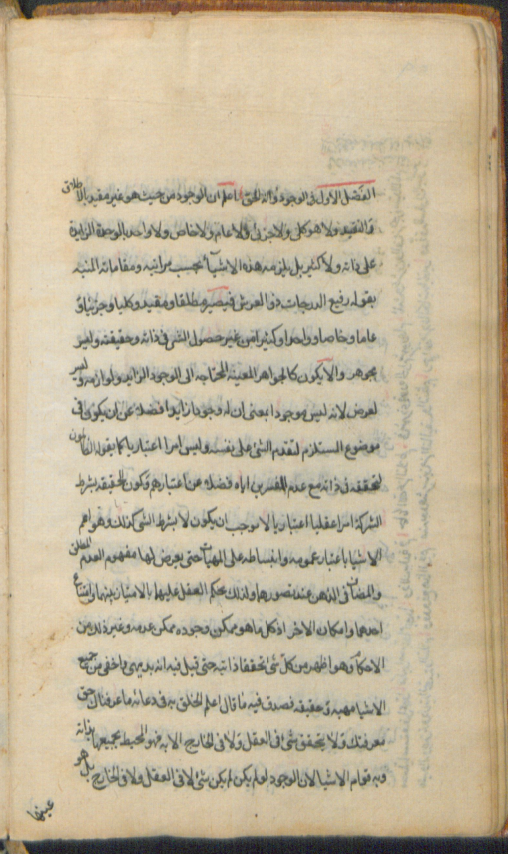 الفصل الاول فى الوجود وانه الحق اعلم ان الوجود من حيث هو غير مقيد بالاطلاق
والتقييد ولا هو كلى ولا جزئى ولا عام ولا خاص ولا واحد بالوحدة الزايدة
على ذاته ولا كثير بل يلزمه هذه الاشيآء بحسب مراتبه ومقاماته المنبه
بقوله رفيع الدرجات ذو العرش فيصير مطلقا ومقيدا وكليا وجزئيا و
عاما وخاصا وواحدا وكثيرا من غير حصول التغير فى ذاته وحقيقته وليس
بجوهر والا يكون كالجواهر المعينة المحتاجة الى الوجود الزايد ولوازمه وليس
لعرض لانه ليس موجودا بمعنى ان له وجودا زايدا فضلا عن ان يكون فى
موضوع المستلزم لتقدم الشئ على نفسه وليس امرا اعتباريا كما يقوله الظالمون
لتحققه فى ذاته مع عدم المعتبرين اياه فضلا عن اعتبارهم وكون الحقيقة بشرط
الشركة امرا عقليا اعتباريا لا يوجب ان يكون لا بشرط الشئ كذلك وهو اعم
الاشيا باعتبار عمومه وانبساطه على المهيات حتى يعرض لها مفهوم العدم المطلق
والمضاف فى الذهن عند تصورها ولذلك يحكم العقل عليهما بالامتياز بينهما وامتناع
احدهما وامكان الاخر اذ كل ما هو ممكن وجوده ممكن عدمه وغير ذلك من
الاحكام وهو اظهر من كل شئ تحققا ذاتية حتى قيل فيه انه بديهى واخفى من جميع
الاشيا مهية وحقيقة فصدق فيه ما قال اعلم الخلق به فى دعائه ما عرفناك حق
معرفتك ولا يتحقق شئ فى العقل ولا فى الخارج الا به فهو المحيط بجميعها بذاته
وبه قوام الاشيا لان الوجود لو لم يكن لم يكن شئ لا فى العقل ولا فى الخارج بل هو
عينها